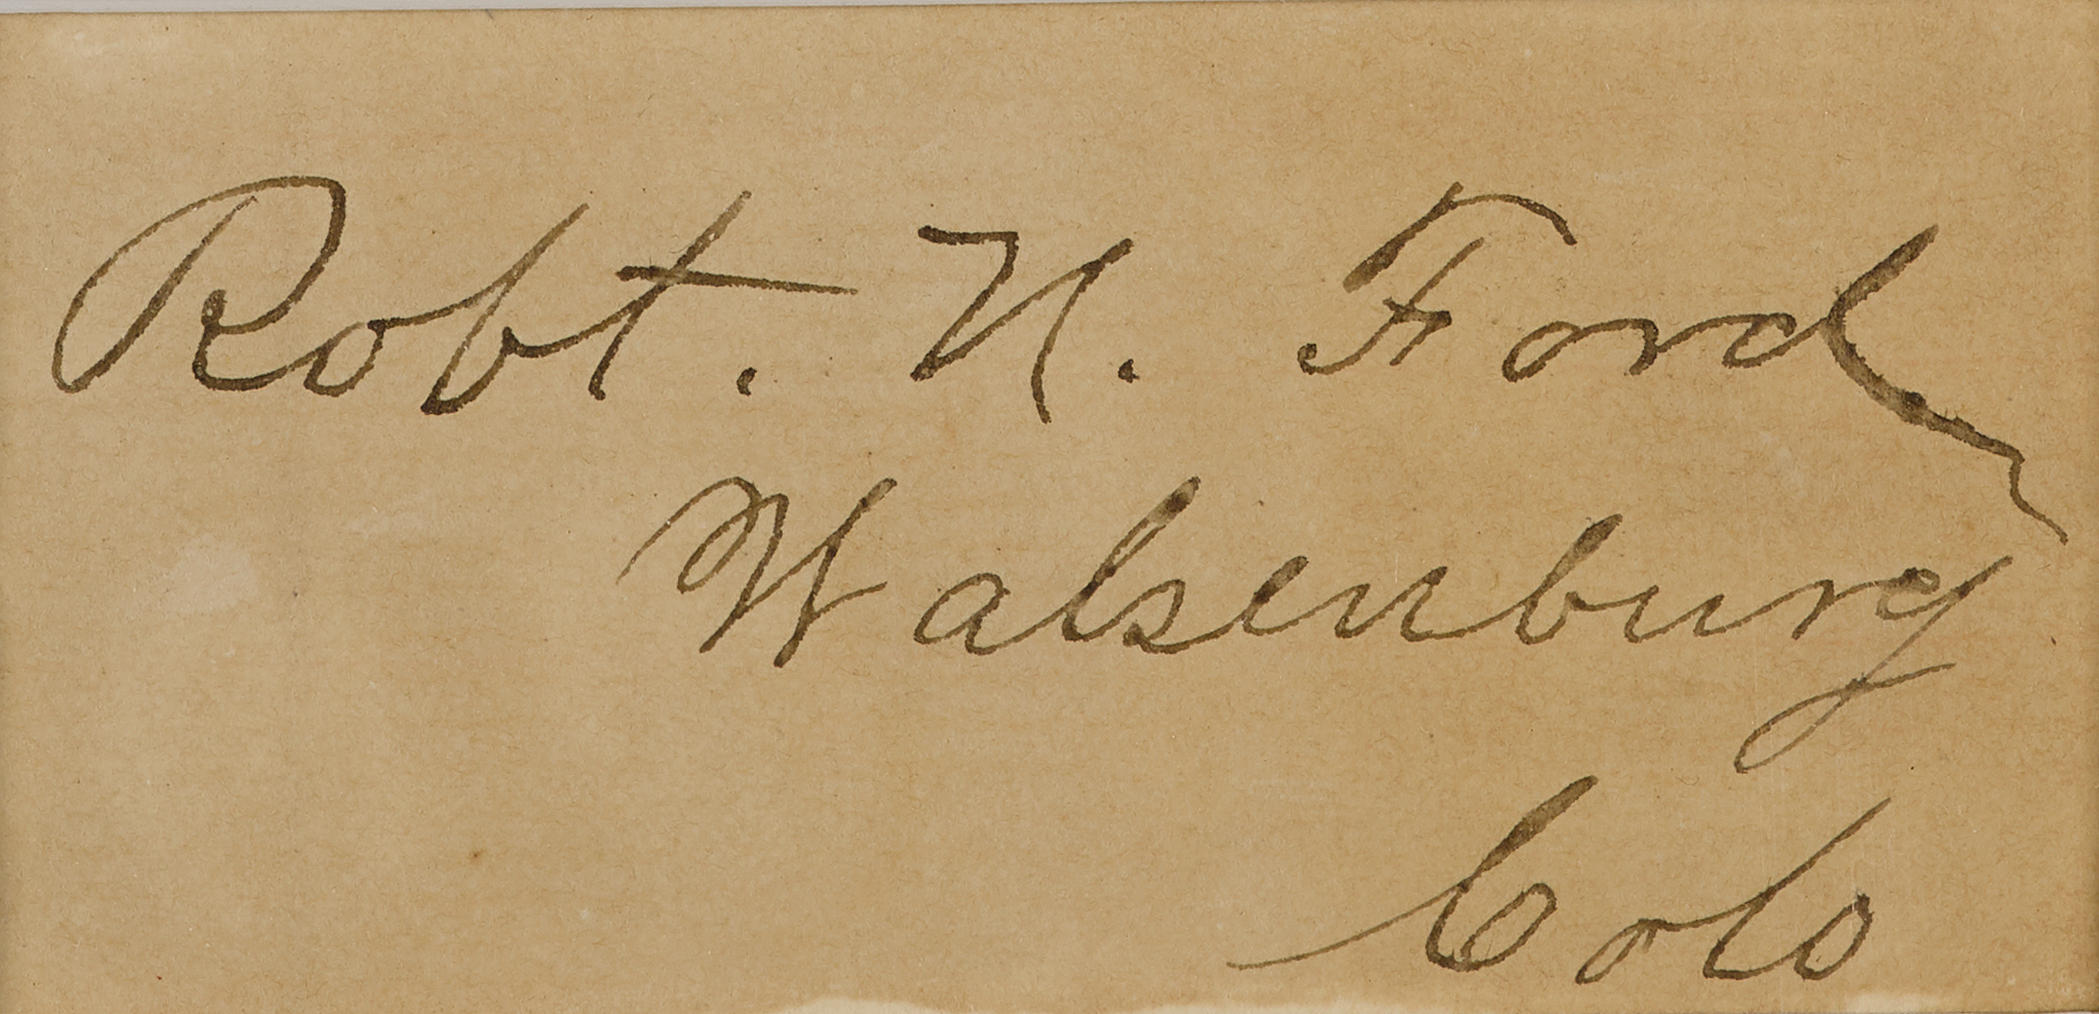 Robt. N. Ford
Walsenburg
Colo